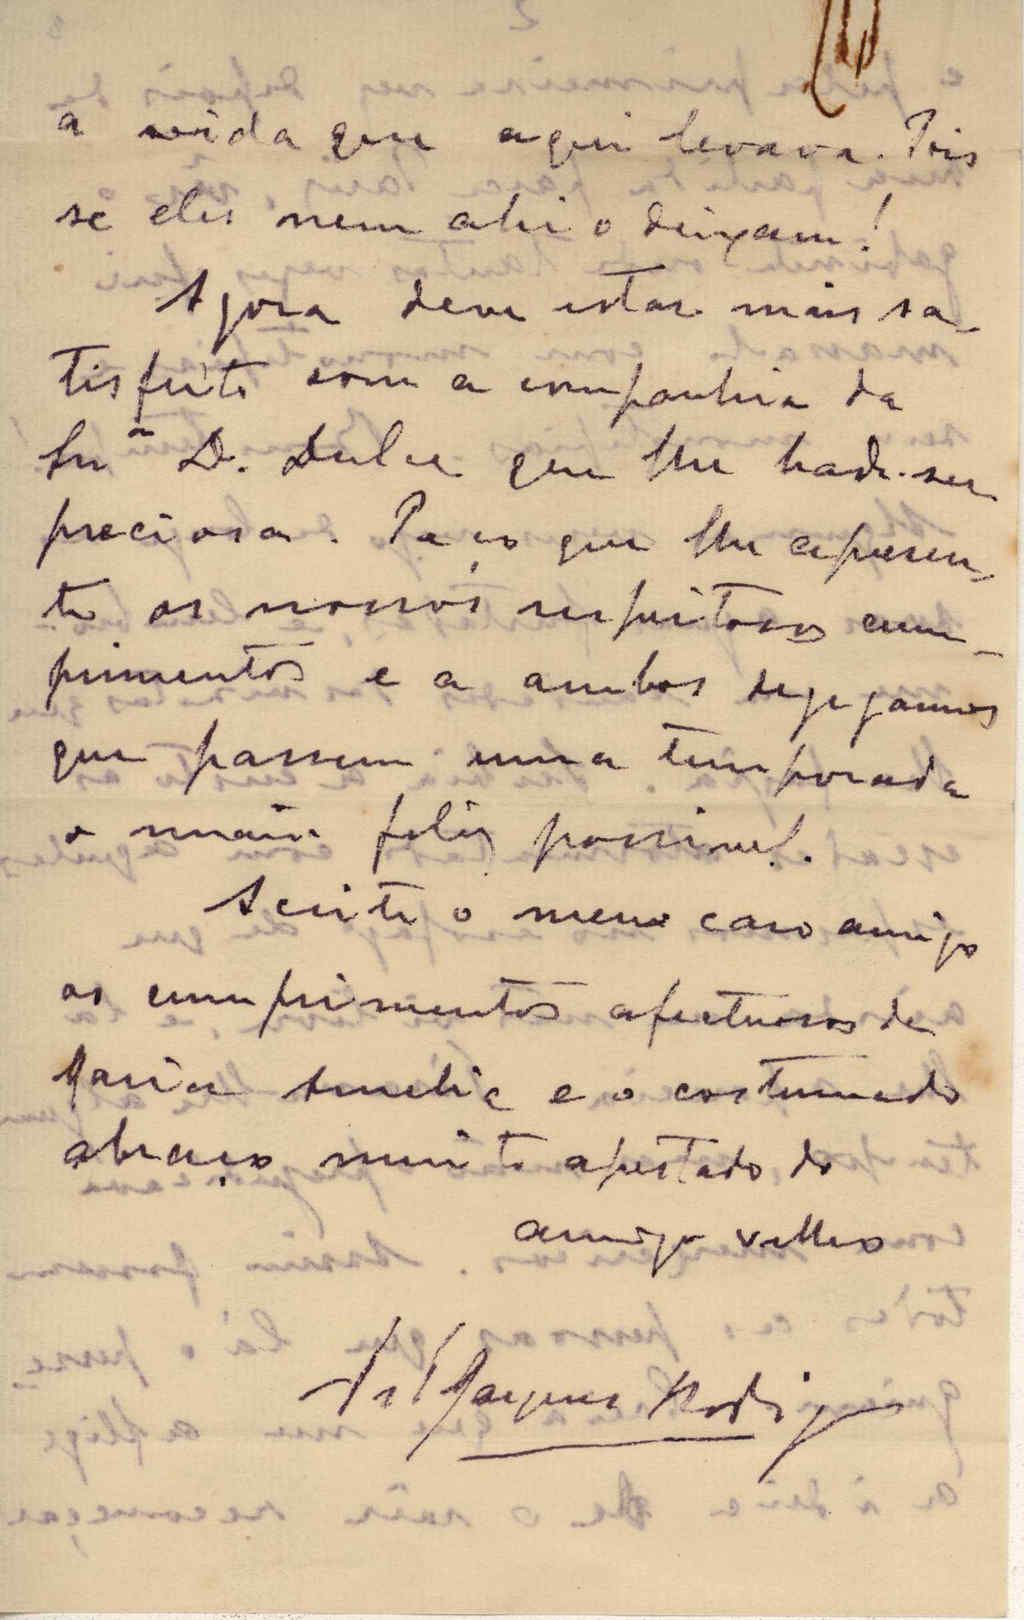 a vida que aqui levava. Pois
se eles nem ahi o deixam!
Agora deve estar mais sa-
tisfeito com a companhia da
Snrª D. Dulce que lhe hade ser
preciosa. Peço que lhe apresen-
te os nossos respeitosos cum-
primentos e a ambos desejamos
que passem uma temporada
o mais feliz possivel.
Aceite o meu caro amigo
os cumprimentos afectuosos de
Maria Amelia e o costumado
abraço muito apertado do
amigo velho
Marques Rodrigues